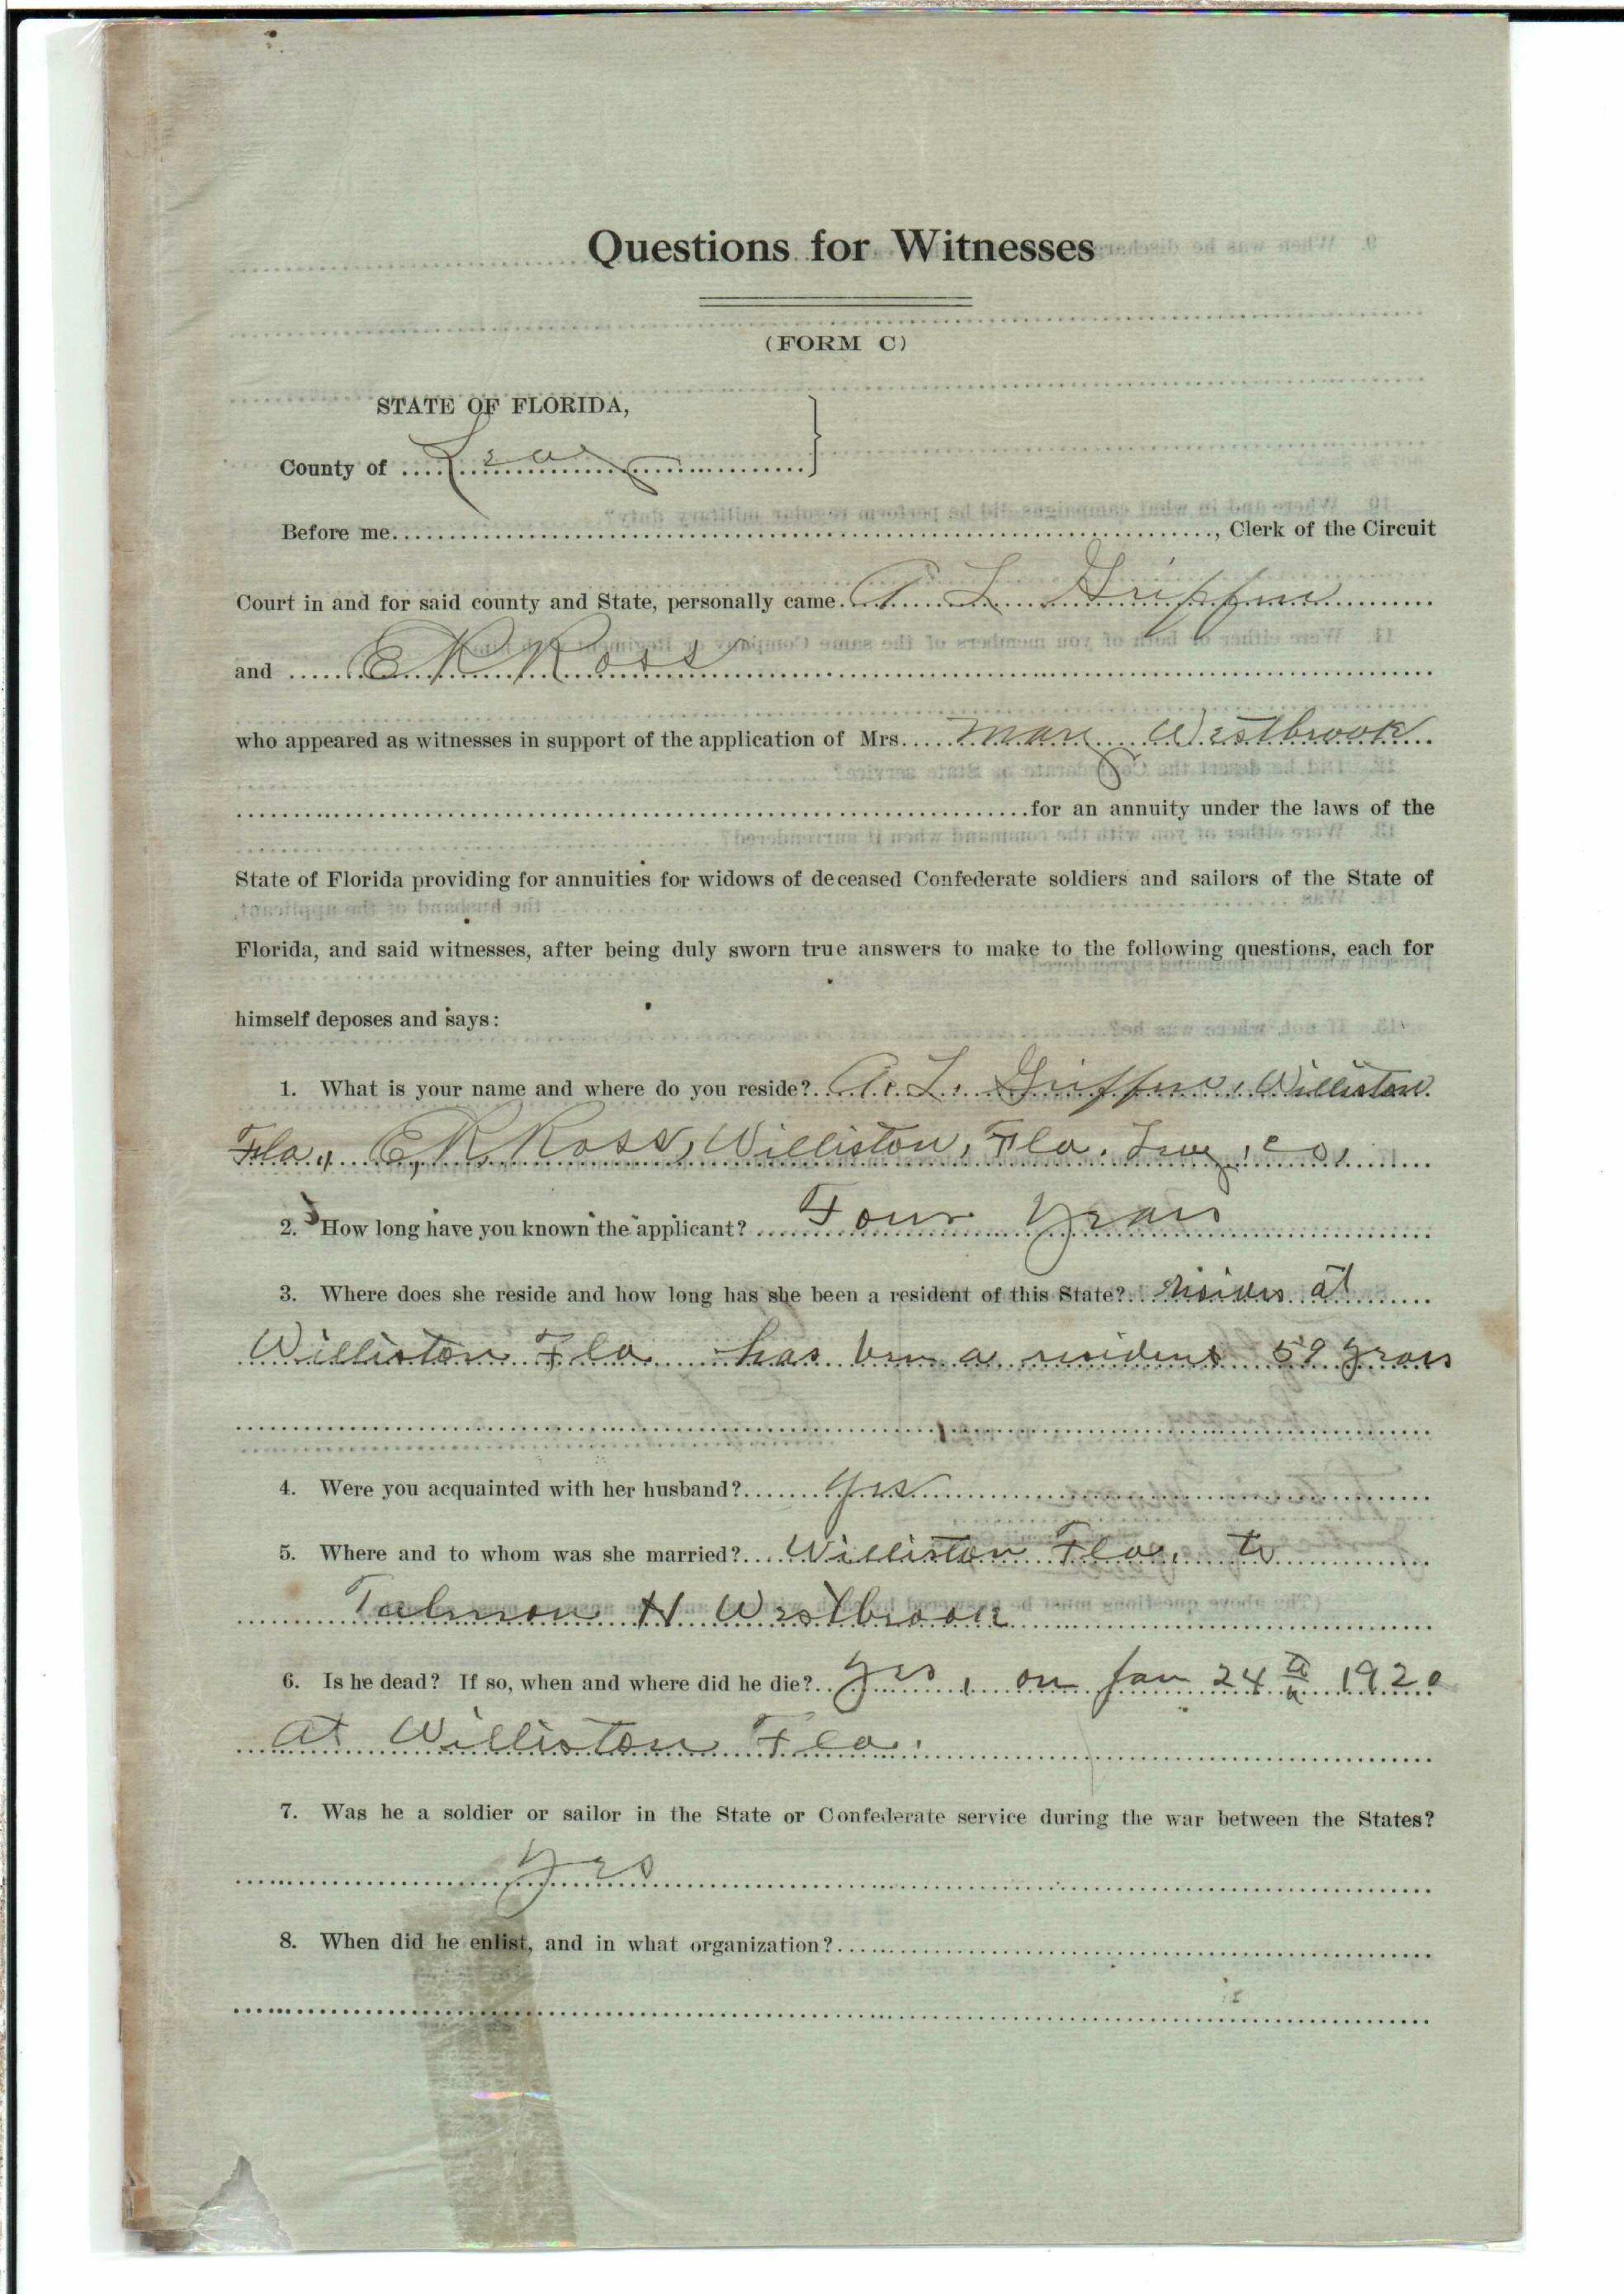 Questions for Witnesses
(FORM C)
STATE OF FLORIDA,
County of Levy
Before me, Clerk of the Circuit
Court in and for said county and State, personally came A L Griffin
and E R Ross
who appeared as witnesses in support of the application of Mrs. Mary Westbrook
for an annuity under the laws of the
State of Florida providing for annuities for widows of deceased Confederate soldiers and sailors of the State of
Florida, and said witnesses, after being duly sworn true answers to make to the following questions, each for
himself deposes and says:
1. What is your name and where do you reside? A. L. Griffin, Williston
Fla., E R Ross, Williston, Fla. Levy, Co,
2. How long have you known the applicant? Four years
3. Where does she reside and how long has she been a resident of this State? resides at
Williston Fla has been a resident 59 years
4. Were you acquainted with her husband? yes
5. Where and to whom was she married? Williston Fla, to
Talmon H Westbrook
6. Is he dead? If so, when and where did he die? yes, on Jan 24 1920
at Williston Fla.
7. Was he a soldier or sailor in the State or Confederate service during the war between the States?
yes
8. When did he enlist, and in what organization?